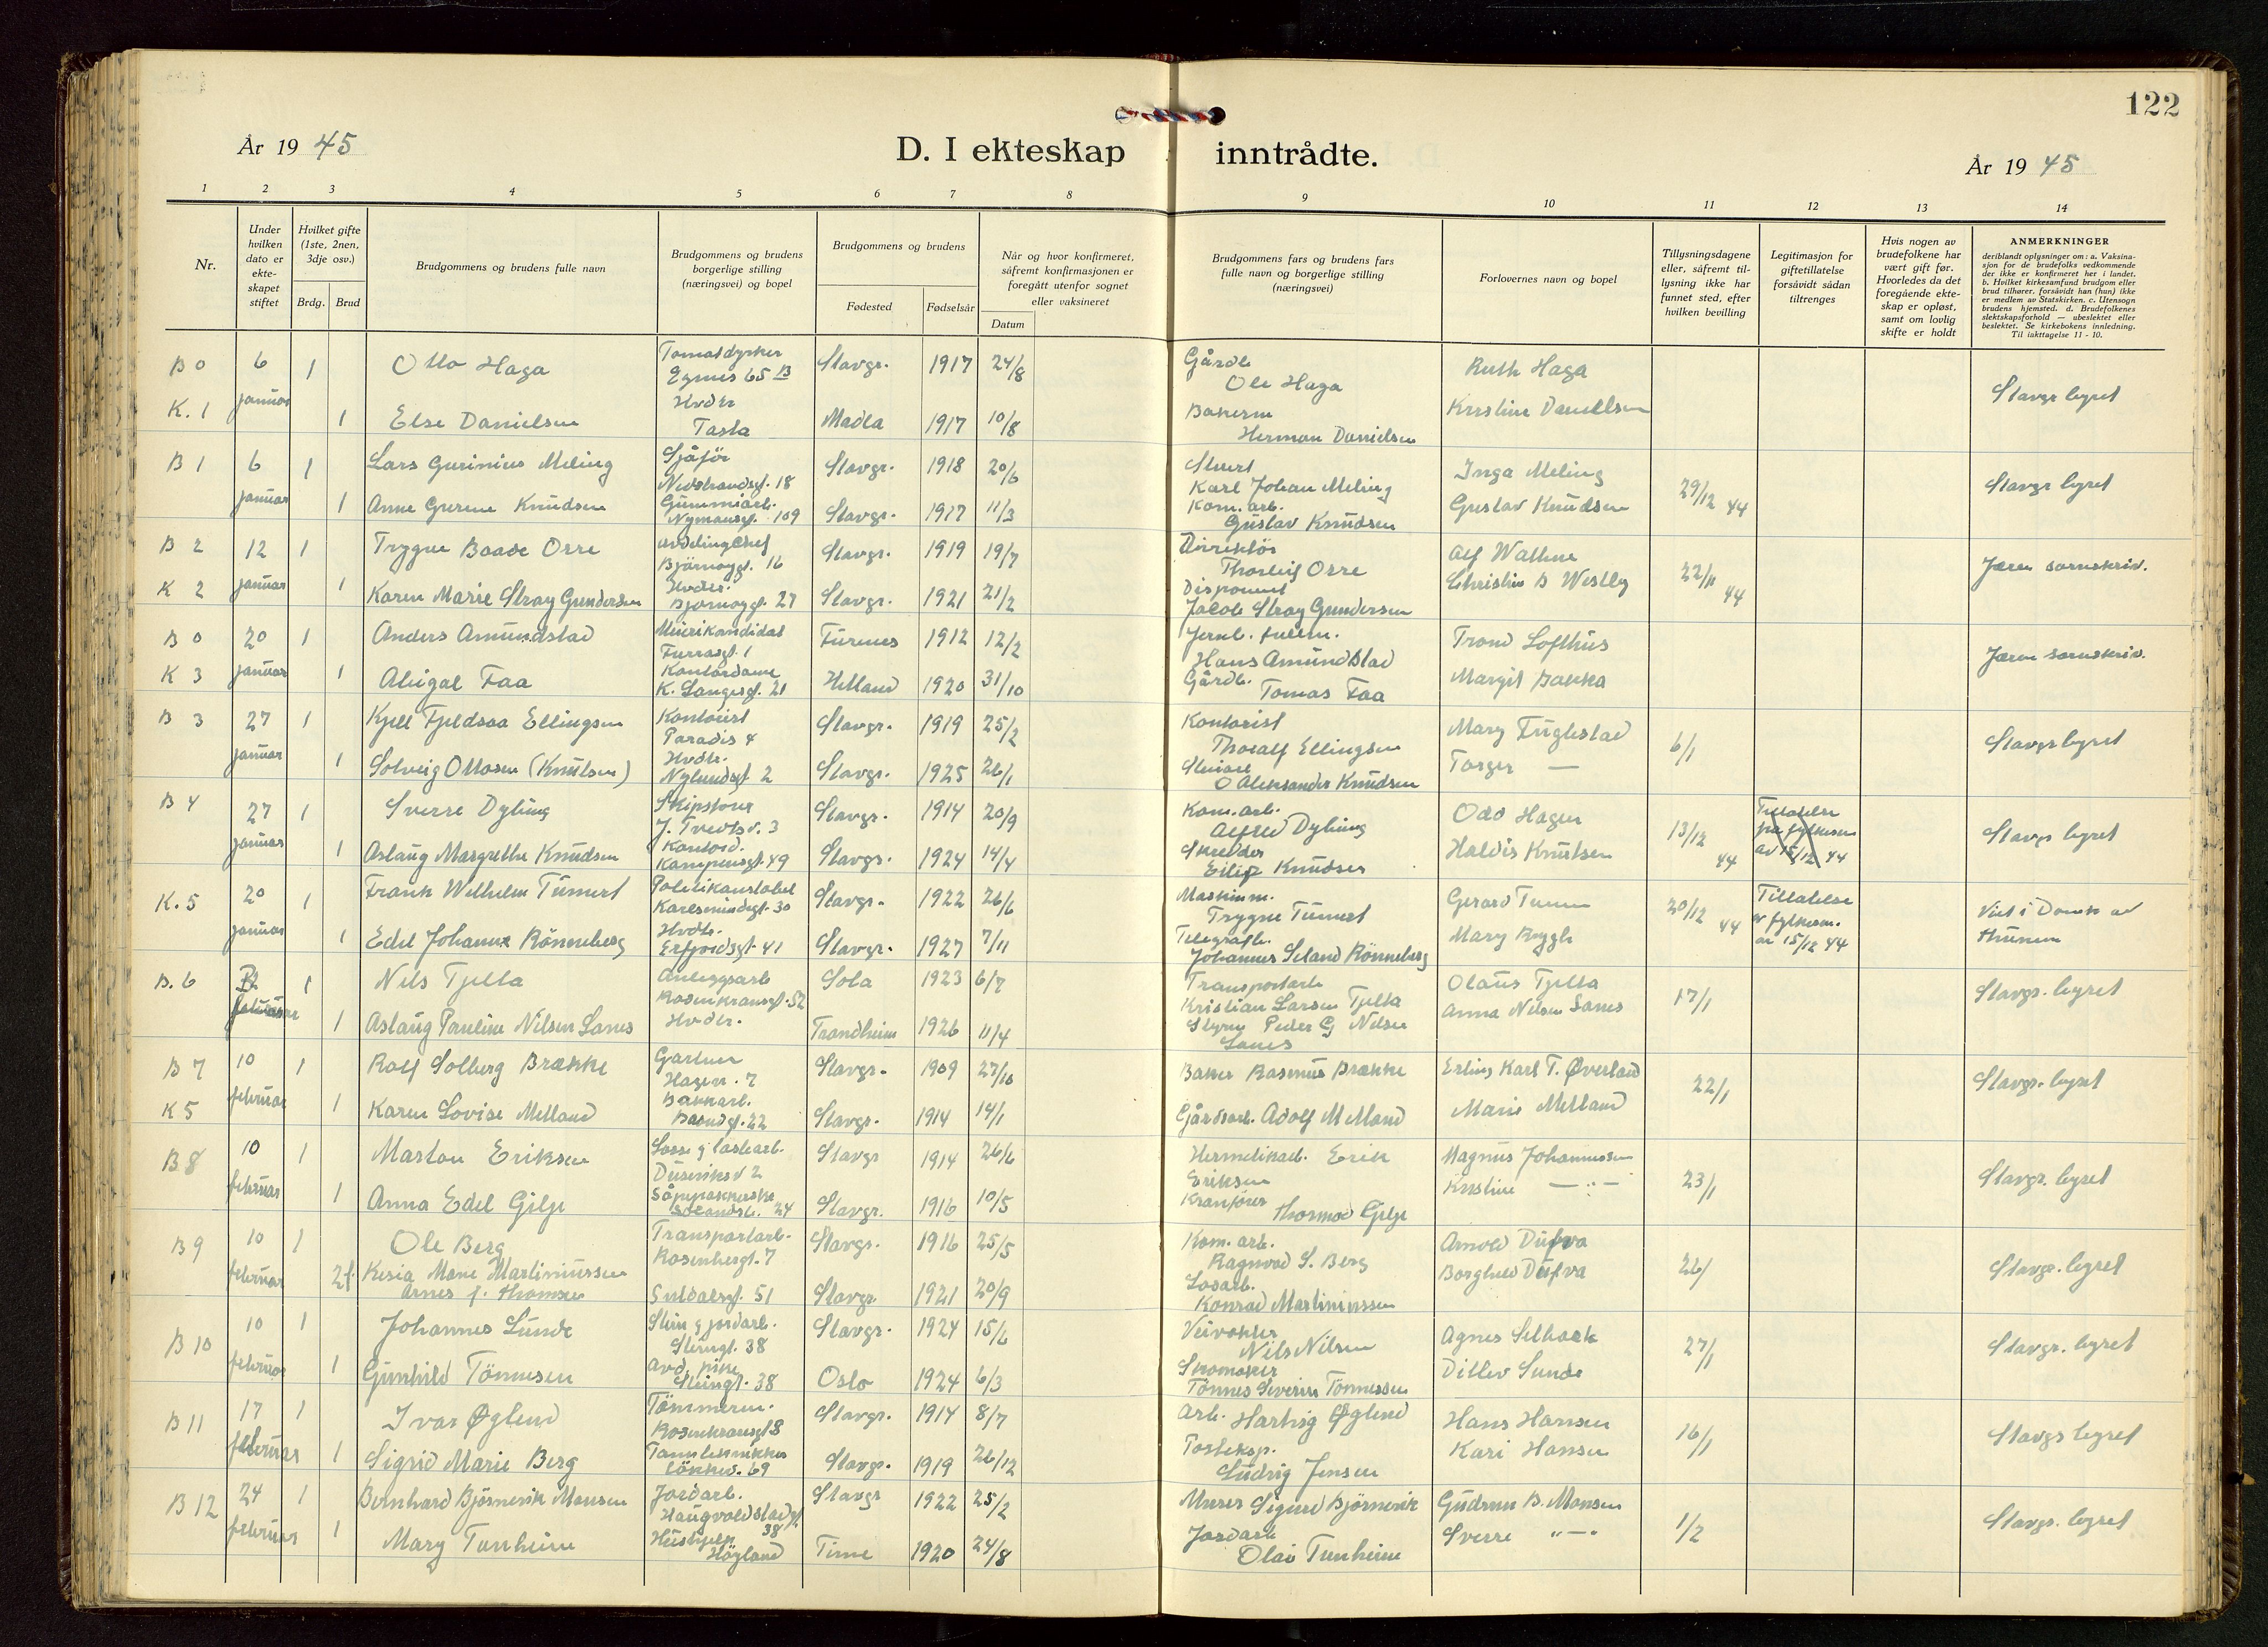 122
År 19 45
D. I ekteskap inntrådte.
År 19 45
1 2 3 4 5 6 7 8 9 10 11 12 13 14
Nr.
Under hvilken dato er ekte-skapet stiftet
Hvilket gifte (1ste, 2nen, 3dje osv.)
Brdg. Brud
Brudgommens og brudens fulle navn
Brudgommens og brudens borgerlige stilling (næringsvei) og bopel
Brudgommens og brudens
Fødested Fødselsår
Når og hvor konfirmeret, såfremt konfirmasjonen er foregått utenfor sognet eller vaksineret
Datum
Brudgommens fars og brudens fars fulle navn og borgerlige stilling (næringsvei)
Forlovernes navn og bopel
Tillysningsdagene eller, såfremt til-lysning ikke har funnet sted, efter hvilken bevilling
Legitimasjon for giftetillatelse forsåvidt sådan tiltrenges
Hvis nogen av brudefolkene har vært gift før. Hvorledes da det foregående ekte-skap er opløst, samt om lovlig skifte er holdt
ANMERKNINGER
deriblandt oplysninger om: a. Vaksina-sjon for de brudefolks vedkommende der ikke er konfirmeret her i landet. b. Hvilket kirkesamfund brudgom eller brud tilhører, forsåvidt han (hun) ikke er medlem av Statskirken. c. Utensogn brudens hjemsted. d. Brudefolkenes slektskapsforhold — ubeslektet eller beslektet. Se kirkebokens innledning. Til iakttagelse 11 - 10.
B 0 6 januar 1 Otto Haga Tomatdyrker Egnes 65 B Stavgr. 1917 24/8 Gårdb Ole Haga Ruth Haga Stavgr byret
K. 1 1 Else Danielsen Hvdtr Tasta Madla 1917 10/8 Bakerm Herman Danielsen Kristine Danielsen
B 1 6 januar 1 Lars Gurinius Meling Sjåför Nedstrandsgt. 18 Stavgr. 1918 20/6 Stuert Karl Johan Meling Inga Meling 29/12 44 Stavgr byret
1 Anne Gurine Knudsen Gummiarb. Nymansgt. 109 Stavgr. 1917 11/3 Kom. arb. Gustav Knudsen Gustav Knudsen
B 2 12 januar 1 Trygve Baade Orre Avdelingchef Bjørnøygt. 16 Stavgr. 1919 19/7 Dirrektör Thorleif Orre Alf Wathne 22/11 44 Jæren sorenskriv.
K 2 1 Karen Marie Stray Gundersen Hvdtr. Bjørnøygt. 27 Stavgr. 1921 21/2 Disponent Jacob Stray Gundersen Christin B Westby
B 0 20 januar 1 Anders Amundstad Meierikandidat Furrasgt. 1 Furenes 1912 12/2 Jernb. fullm. Hans Amundstad Trond Lofthus Jæren sorenskriv.
K 3 1 Abigal Faa Kontordame K. Langesgt. 21 Helland 1920 31/10 Gårdb. Tomas Faa Margit Bakka
B 3 27 januar 1 Kjell Fjeldsaa Ellingsen Kontorist Paradis 4 Stavgr. 1919 25/2 Kontorist Thoralf Ellingsen Mary Fuglestad 6/1 Stavgr byret
1 Solveig Ottosen (Knutsen) Hvdtr. Nylundsgt. 2 Stavgr. 1925 26/1 O Aleksander Knudsen Torger —
B 4 27 januar 1 Sverre Dybing J. Tvedtsv. 3 Stavgr. 1914 20/9 Kom. arb. Alfred Dybing Odd Hagen 13/12 44 Tillatelse fra fylkesm av 15/12 44 Stavgr byret
1 Aslaug Margrethe Knudsen Kontord. Kampensgt. 49 Stavgr. 1924 14/4 Skredder Eilif Knudsen Haldis Knutsen
K. 5 20 januar 1 Frank Wilhelm Tümert Politikonstabel Karlsmindegt. 30 Stavgr. 1922 26/6 Maskinm. Trygve Tümert Gerard 20/12 44 Tillatelse av fylkesm. av 15/12 44 Viet i Domk av
1 Edel Johanne Rönneberg Hvdtr. Erfjordsgt. 41 Stavgr. 1927 7/11 Telegrafb. Johannes Seland Rönneberg Mary Rygh
B. 6 februar 1 Nils Tjelta Anleggsarb Rosenkransgt. 52 Sola 1923 6/7 Transportarb Kristian Larsen Tjelta Olaus Tjelta 17/1 Stavgr. byret
1 Aslaug Pauline Nilsen Sanes Hvdtr. Trondheim 1926 11/4 Styrm Peder G Nilsen Sanes Anna Nilsen Sanes
B 7 10 februar 1 Rolf Solberg Brække Gartner Hagen. 7 Stavgr. 1909 27/10 Baker Rasmus Brække Erling Karl T. Øverland 22/1 Stavgr. byret
K 5 1 Karen Lovise Melland Stavgr. 1914 14/1 Gårdsarb. Adolf Melland Marie Melland
B 8 10 februar 1 Marton Eriksen Losse g lastearb. Duseviksv 2 Stavgr 1914 26/6 Hermetikarb. Erik Eriksen Magnus Johannessen 23/1 Stavgr. byret
1 Anna Edel Gilje Såpepakkerske 24 Stavgr. 1916 10/5 Kranfører Thormod Gilje Kristine —"—
B 9 10 februar 1 Ole Berg Transportarb. Rosenbergt. 7 Stavgr. 1916 25/5 Kom. arb. Ragnvald S. Berg Arnold Dufva 26/ Stavgr. byret
2 f. Kesia Mone Martiniussen Arnes f. Thomsen Suldalsgt. 51 Stavgr. 1921 20/9 Losarb. Konrad Martiniussen Borghild Dufva
B 10 10 februar 1 Johannes Sunde Sten g jordarb. Steingt. 38 Stavgr. 1924 15/6 Veivokter Nils Nilsen Agnes Selbæk 27/1 Stavgr. byret
1 Gunhild Tönnesen Avd. pike Steingt. 38 Oslo 1924 6/3 Skomaker Tönnes Severin Tönnessen Ditlev Sunde
B 11 17 februar 1 Ivar Øglend Tömmerm. Rosenkransgt 8 Stavgr. 1914 8/7 Arb. Hartvig Øglend Hans Hansen 16/1 Stavgr byret
1 Sigrid Marie Berg Tannteknikker Løkkev. 69 Stavgr. 1919 26/12 Posteksp. Ludvig Jensen Kari Hansen
B 12 24 februar 1 Bernhard Björnevik Monsen Jordarb. Haugvoldstadgt 38 Stavgr 1922 25/2 Murer Sigurd Björnevik Gudrun B. Monsen 1/2 Stavgr. byret
1 Mary Tunheim Hushjelp Högland Time 1920 24/8 Jordarb Olai Tunheim Sverre "—"